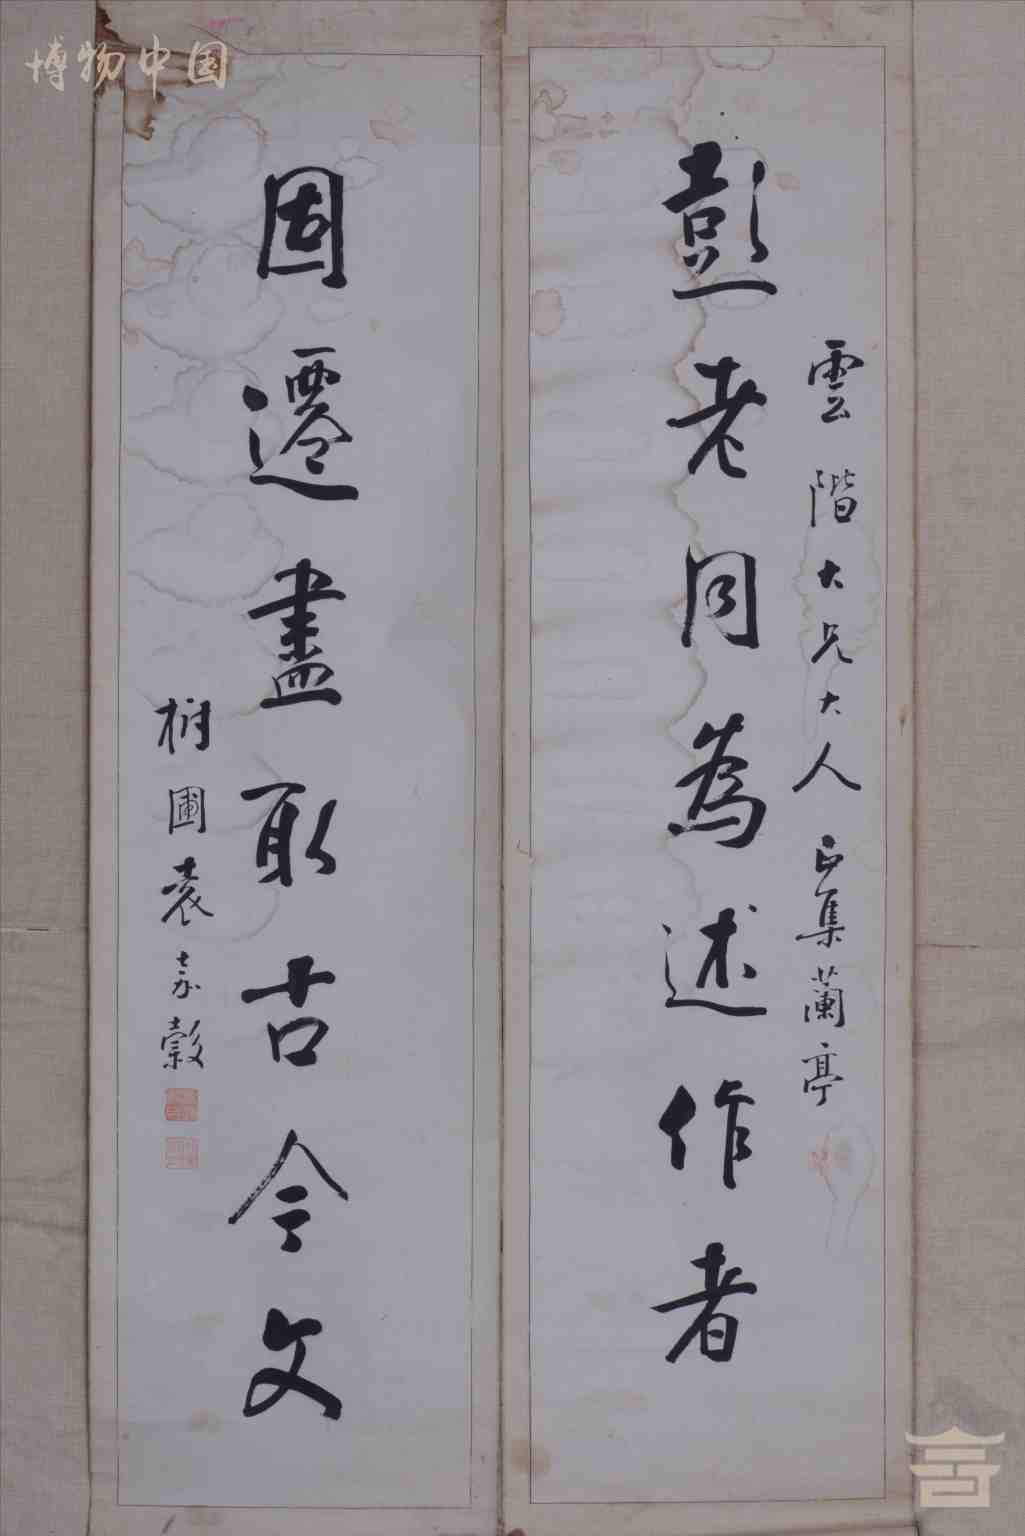 雲階大兄大人 正集蘭亭
彭老同為述作者
固遷盡取古今文
樹圃袁嘉穀
博物中国